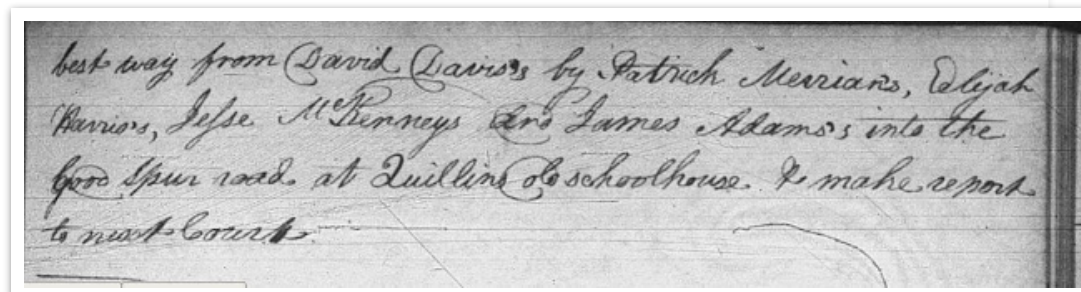 best way from David Davis's by Patrick Merrians, Elijah
Harris's, Jesse McKenneys and James Adams's into the
good Spur road at Quillins old schoolhouse & make report
to next Court